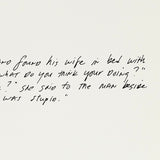 found his wife in bed with
what do you think your doing?"
?" she said to the man beside
was stupid."